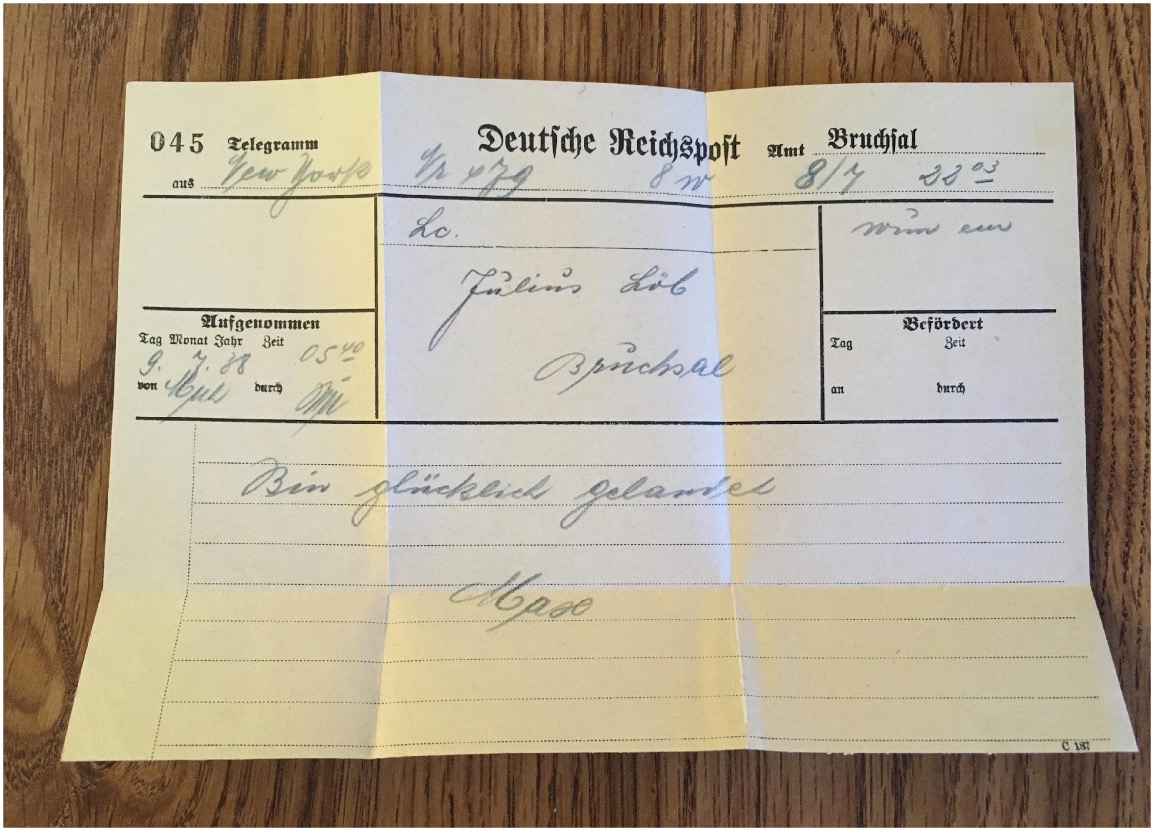 045 Telegramm Deutsche Reichspost Amt Bruchsal
aus New York Nr 8 w 8/7 22 03
Lc.
Julius Löb
Bruchsal
Aufgenommen
Tag Monat Jahr Zeit
9. 7. 38 05 40
von durch
Befördert
Tag Zeit
an durch
Bin glücklich gelandet
Max
C 187